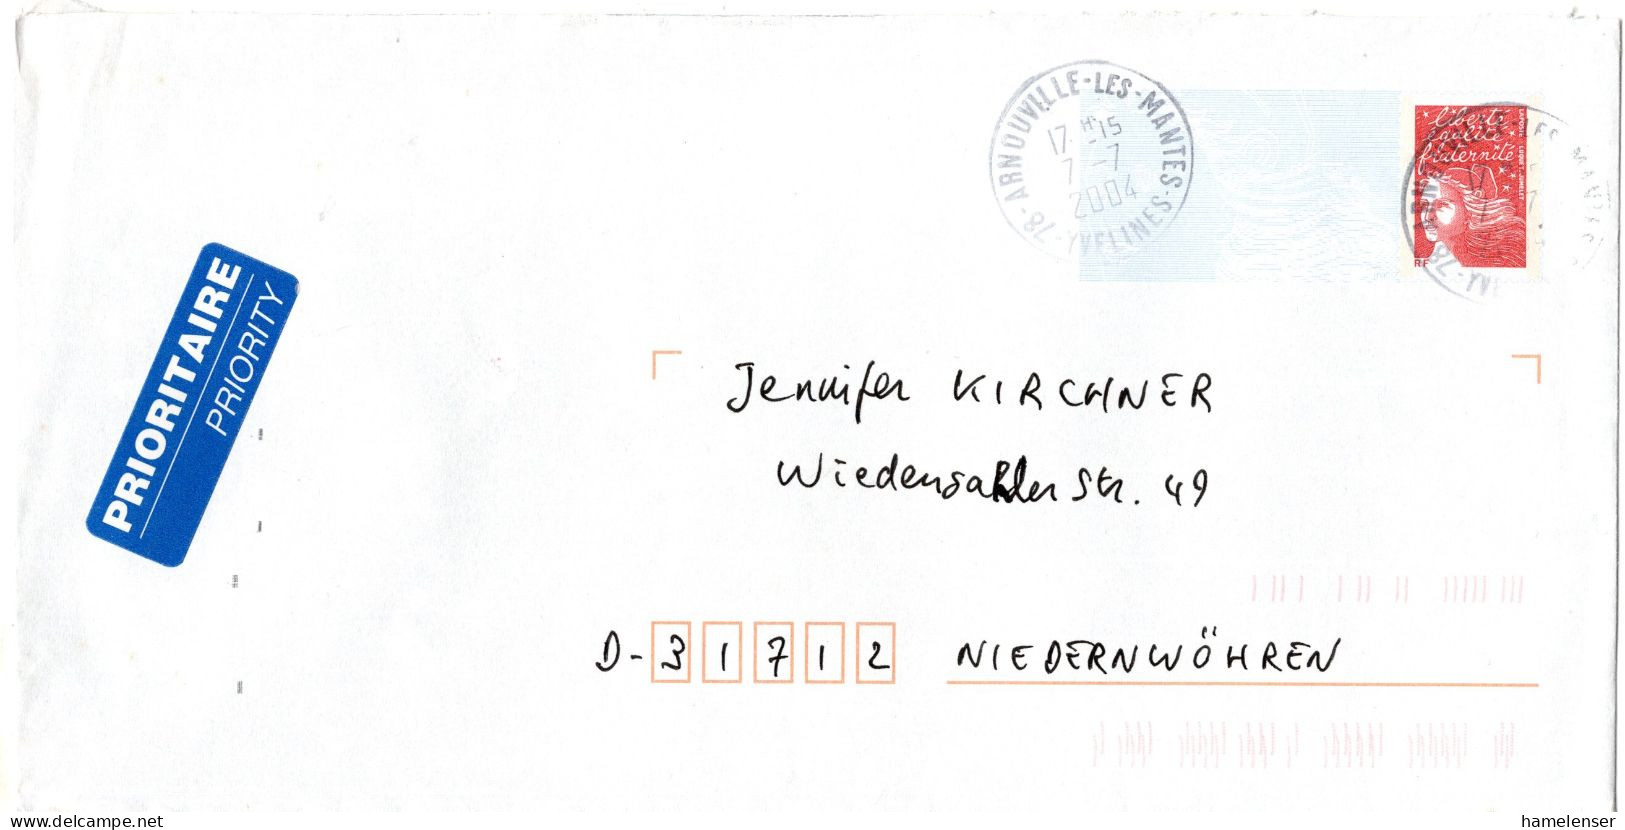 ARNOUVILLE-LES-MANTES
17 H 15
7-7
2004
78-YVELINES
liberté
égalité
fraternité
LA POSTE LUQUET-JUMELET
RF
PRIORITAIRE
PRIORITY
Jennifer KIRCHNER
Wiedensahler Str. 49
D-31712 NIEDERNWÖHREN
www.delcampe.net
hamelenser